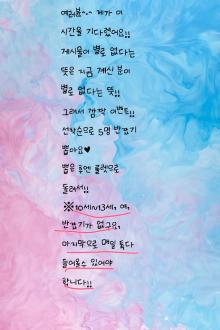 여러분~~ 제가 이
시간을 기다렸어요!!
게시물이 별로 없다는
뜻은 지금 계신 분이
별로 없다는 뜻!!
그래서 깜짝 이벤트!!
선착순으로 5명 반모자
뽑아요♥
뽑은 후엔 룰렛으로
돌려서!!
※10세~13세, 여,
반모자가 없구요,
마지막으로 매일 톡다
들어올수 있어야
합니다!!